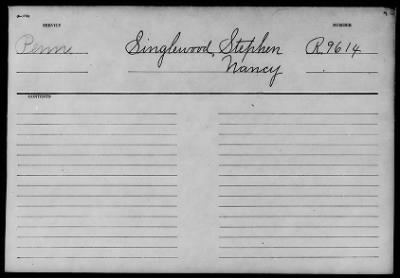 SERVICE NUMBER
Penn. Singlewood, Stephen R. 9614
Nancy
CONTENTS